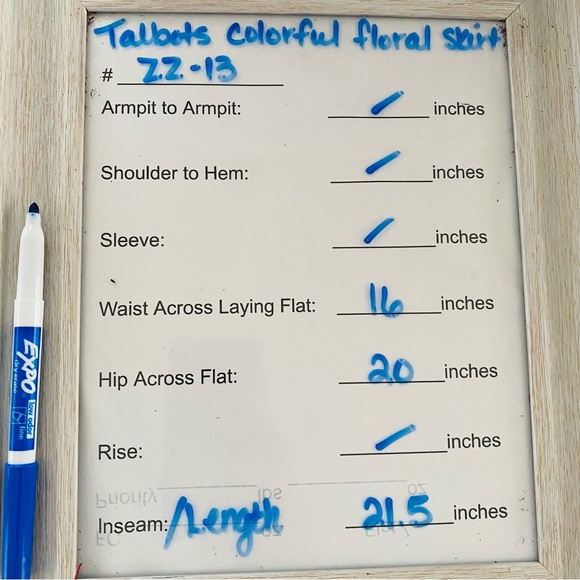 Talbots colorful floral skirt
# ZZ-13
Armpit to Armpit: / inches
Shoulder to Hem: / inches
Sleeve: / inches
Waist Across Laying Flat: 16 inches
Hip Across Flat: 20 inches
Rise: / inches
Priority lbs oz
Inseam: /Length 21.5 inches
EXPO
low odor
fine